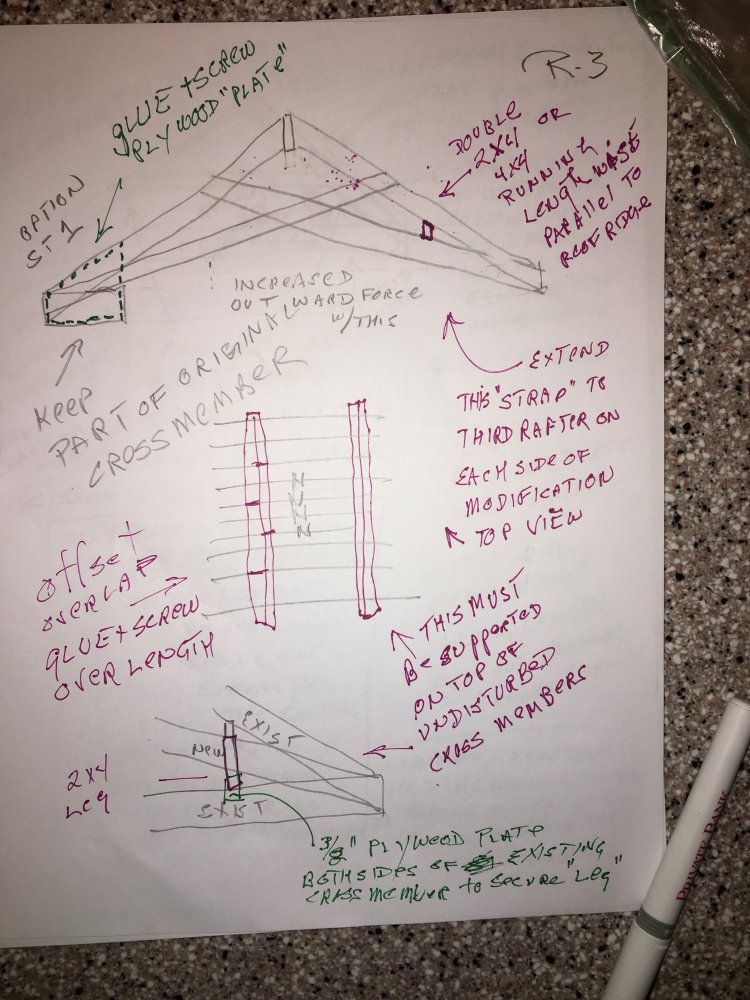 R-3
GLUE + SCREW
PLYWOOD "PLATE"
DOUBLE
2X4 OR
4X4
RUNNING
LENGTH WISE
PARALLEL TO
ROOF RIDGE
OPTION
ST 1
INCREASED
OUTWARD FORCE
W/THIS
KEEP
PART OF ORIGINAL
CROSS MEMBER
EXTEND
THIS "STRAP" TO
THIRD RAFTER ON
EACH SIDE OF
MODIFICATION
TOP VIEW
offset
OVERLAP
GLUE + SCREW
OVER LENGTH
THIS MUST
BE SUPPORTED
ON TOP OF
UNDISTURBED
CROSS MEMBERS
EXIST
NEW
2X4
LEG
EXIST
3/8" PLYWOOD PLATE
BOTH SIDES OF EXISTING
CROSS MEMBER to SECURE "LEG"
PRIVATE BANK